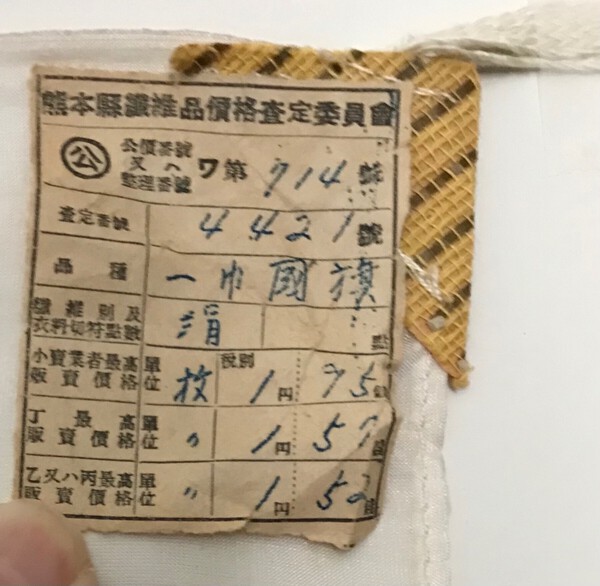 熊本縣纖維品價格査定委員會
公 公價番號又ハ整理番號 ワ第 714 號
査定番號 4421 號
品種 一巾國旗
纖維別及衣料切符點數 絹 點
小賣業者最高販賣價格 單位 枚 税別 1円 75錢
丁最高販賣價格 單位 〃 1円 57錢
乙又ハ丙最高販賣價格 單位 〃 1円 52錢